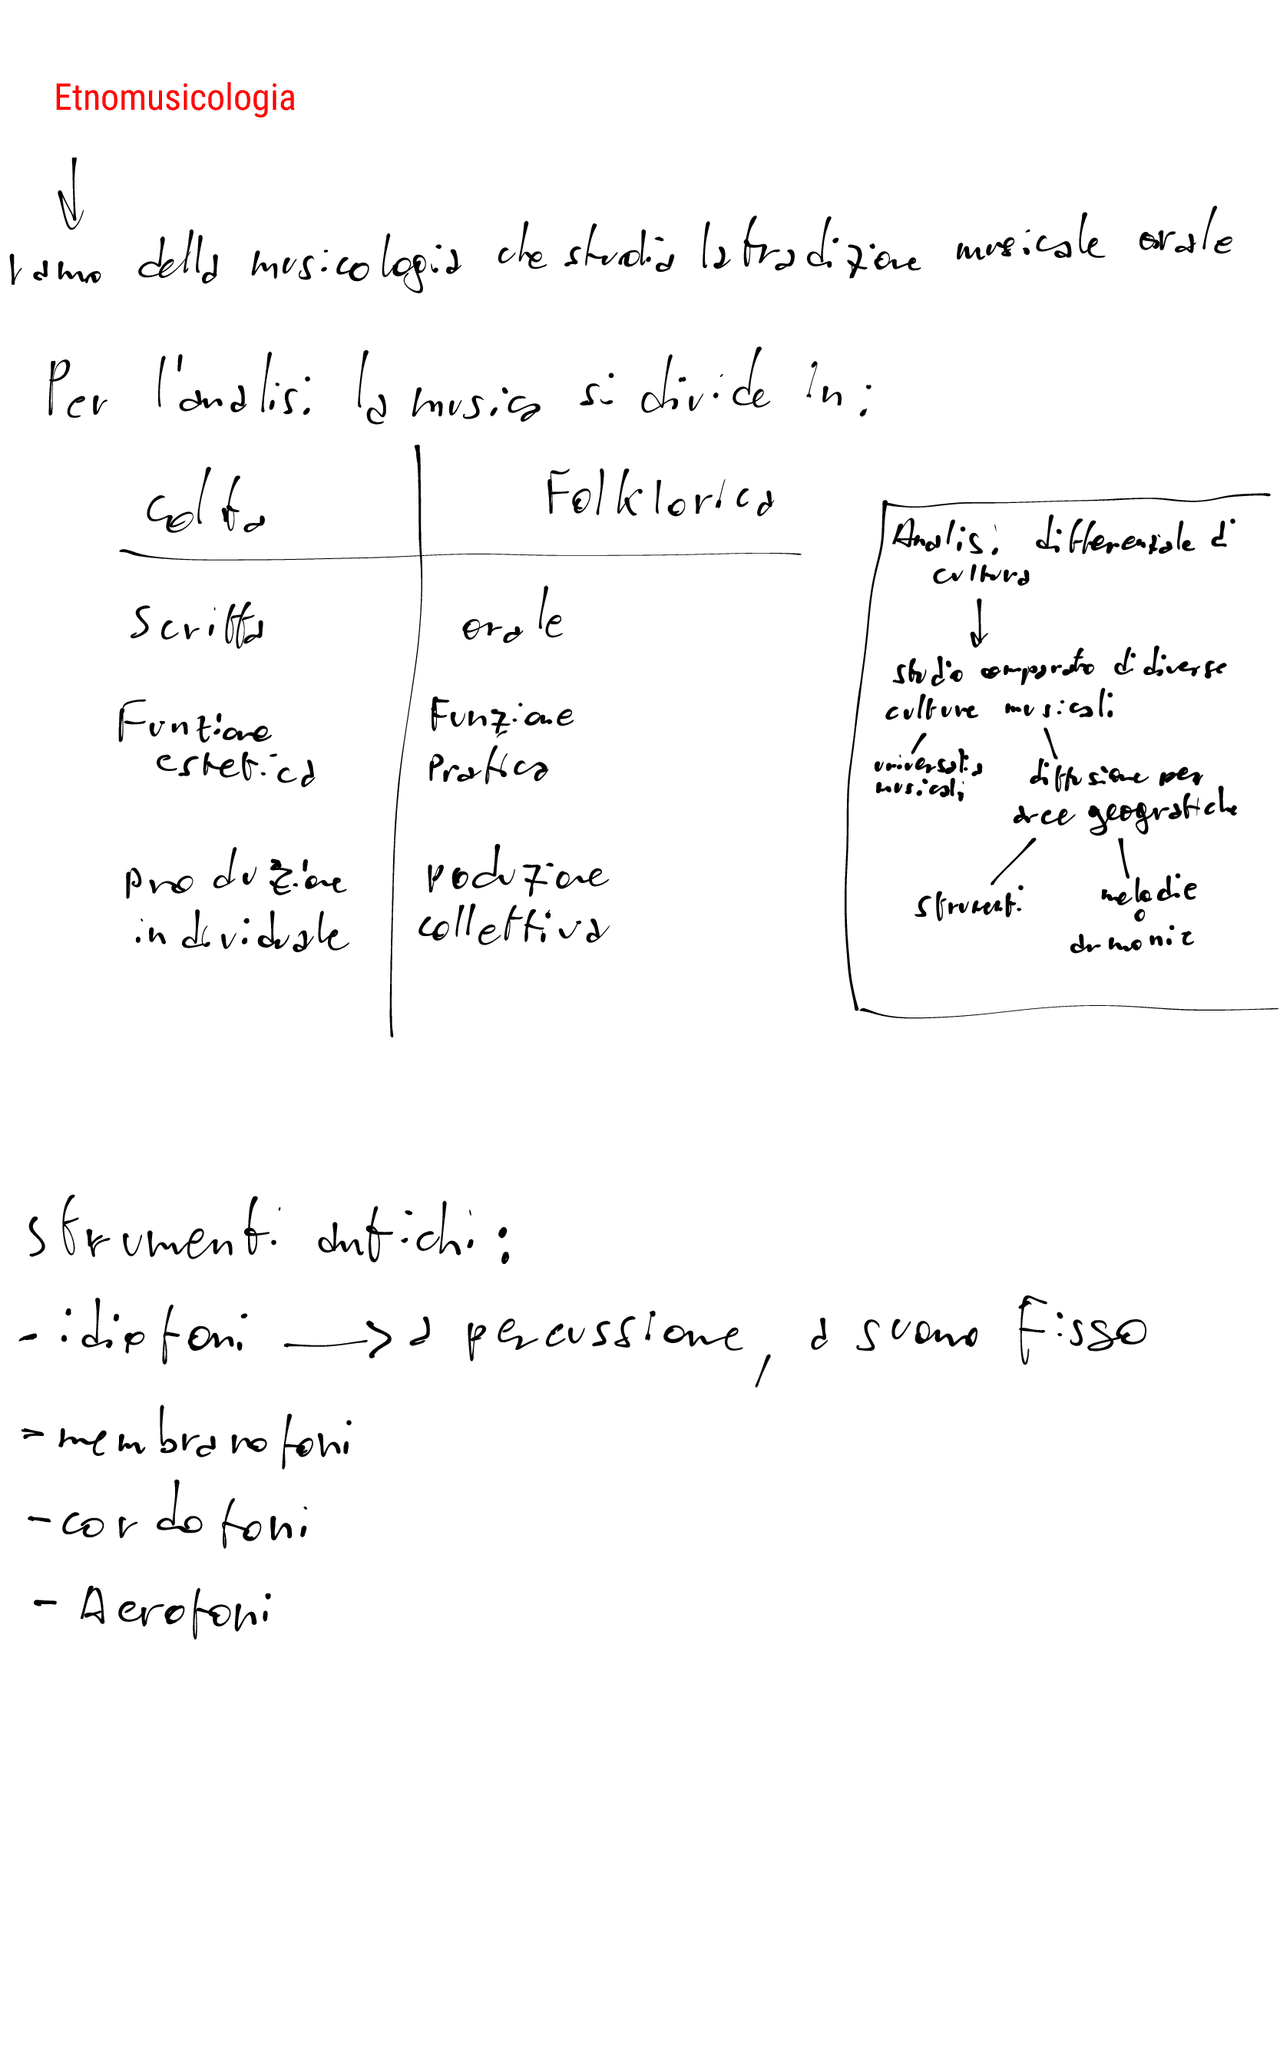 Etnomusicologia
ramo della musicologia che studia la tradizione musicale orale
Per l'analisi la musica si divide in:
colta
Folklorica
scritta
orale
Funzione
estetica
Funzione
Pratica
produzione
individuale
poduzione
collettiva
Analisi differenziale di
cultura
studio comparato di diverse
culture musicali
musicali
diffusione per
aree geografiche
strumenti
melodie
o
armonie
strumenti antichi:
- idiofoni → a percussione, a suono Fisso
- membranofoni
- cordofoni
- Aerofoni